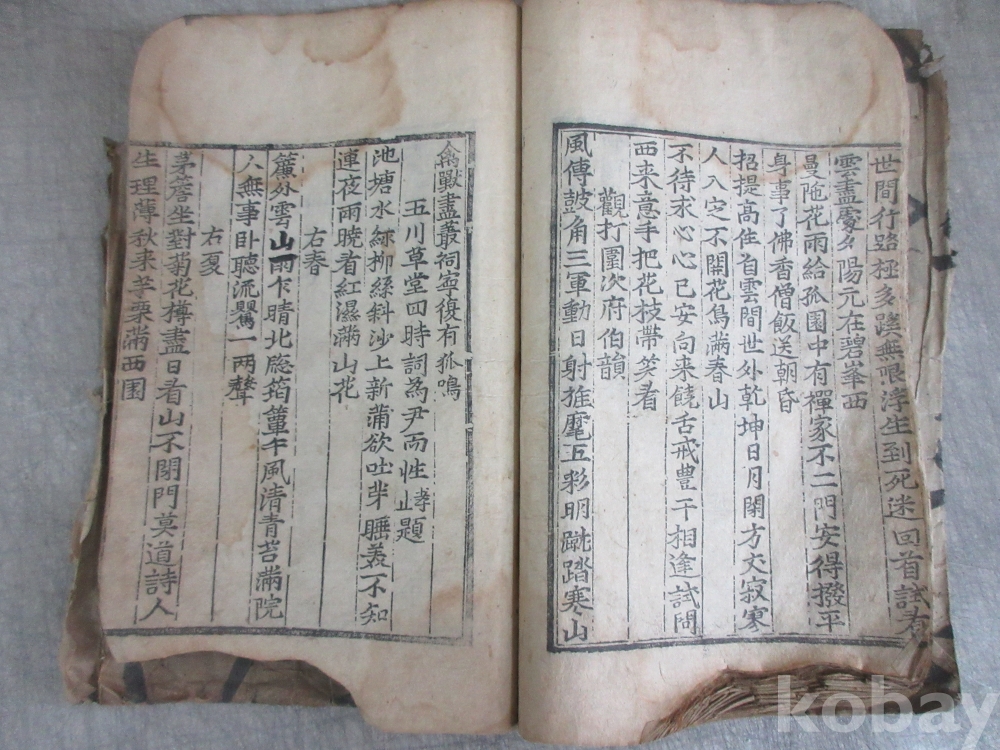 世間行路極多蹊無限浮生到死迷回首試看
雲盡處夕陽元在碧峯西
曼陁花雨給孤園中有禪家不二門安得撥平
身事了佛香僧飯送朝昏
招提高住白雲間世外乾坤日月閑方丈寂寥
人入定不關花鳥滿春山
不待求心心已安向来饒舌戒豊干相逢試問
西来意手把花枝帶笑看
觀打圍次府伯韻
風傳皷角三軍動日射旌麾五彩明蹴踏寒山
禽獸盡叢祠寧復有狐鳴
五川草堂四時詞為尹而性孝止題
池塘水綠柳絲斜沙上新蒲欲吐芽睡美不知
連夜雨曉看紅濕滿山花
右春
簾外雲山雨乍晴北牕筠簟午風清青苔滿院
人無事卧聽流鸎一兩聲
右夏
茅簷坐對菊花樽盡日看山不閉門莫道詩人
生理薄秋来芋栗滿西園
kobay